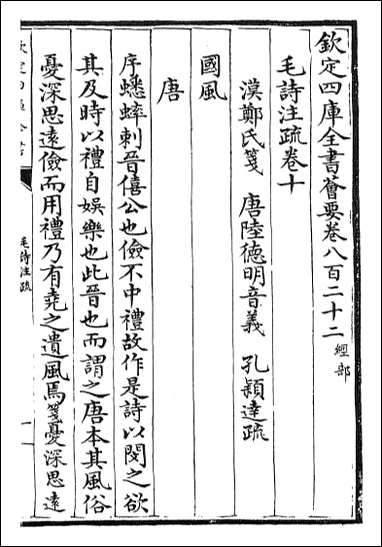 欽定四庫全書薈要卷八百二十二 經部
毛詩注疏卷十
漢鄭氏箋 唐陸德明音義 孔穎達疏
國風
唐
序蟋蟀刺晉僖公也儉不中禮故作是詩以閔之欲
其及時以禮自娛樂也此晉也而謂之唐本其風俗
憂深思遠儉而用禮乃有堯之遺風焉箋憂深思遠
毛詩注疏
一